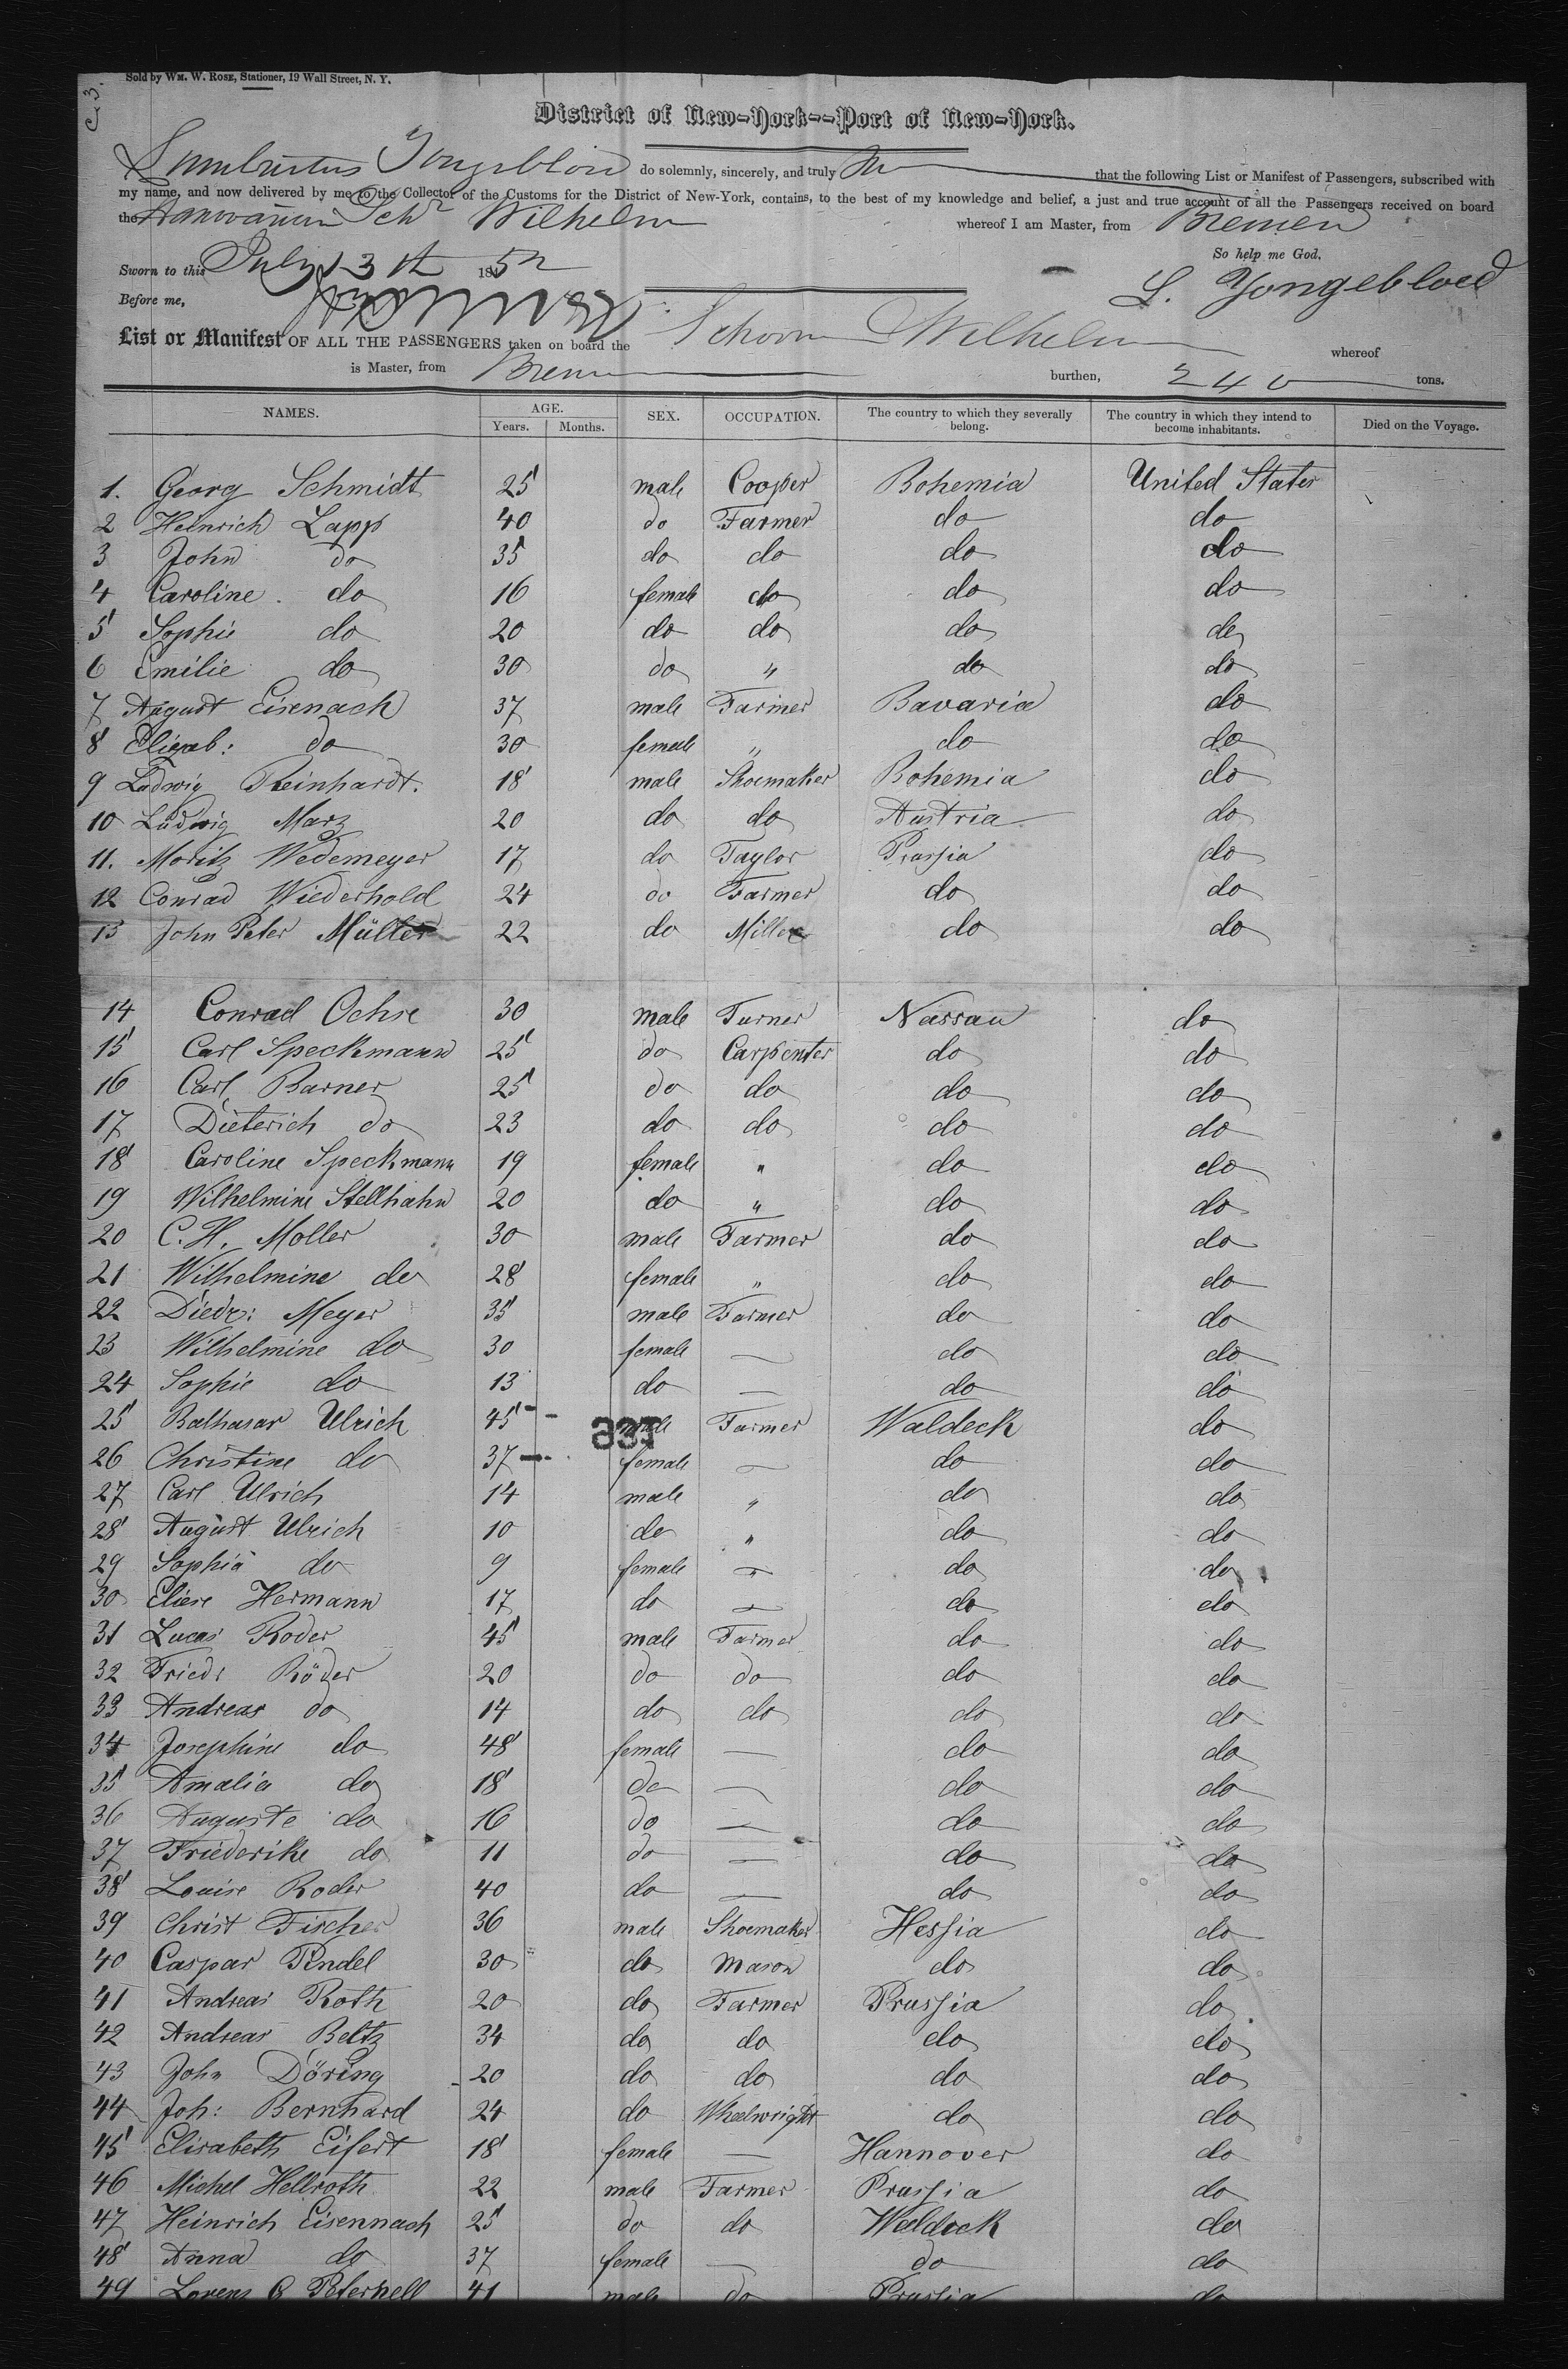 Sold by WM. W. ROSE, Stationer, 19 Wall Street, N. Y.
District of New-York--Port of New-York.
do solemnly, sincerely, and truly that the following List or Manifest of Passengers, subscribed with
my name, and now delivered by me to the Collector of the Customs for the District of New-York, contains, to the best of my knowledge and belief, a just and true account of all the Passengers received on board
the Schr Wilhelm whereof I am Master, from Bremen
So help me God,
Sworn to this July 13th 1852
L. Yongebloed
Before me,
List or Manifest OF ALL THE PASSENGERS taken on board the Schoon Wilhelm whereof
is Master, from Bremen burthen, 240 tons.
NAMES. AGE. Years. Months. SEX. OCCUPATION. The country to which they severally belong. The country in which they intend to become inhabitants. Died on the Voyage.
1. Georg Schmidt 25 male Cooper Bohemia United States
2 Heinrich Lapp 40 do Farmer do do
3 John do 35 do do do do
4 Caroline do 16 female do do do
5 Sophie do 20 do do do do
6 Emilie do 30 do " do do
7 August Eisenach 37 male Farmer Bavaria do
8 Elizab: do 30 female " do do
9 Ludwig Reinhardt. 18 male Shoemaker Bohemia do
10 Ludwig Marz 20 do do Austria do
11. Moritz Wedemeyer 17 do Taylor Prussia do
12 Conrad Wiederhold 24 do Farmer do do
13 John Peter Müller 22 do Miller do do
14 Conrad Ochse 30 male Turner Nassau do
15 Carl Speckmann 25 do Carpenter do do
16 Carl Barner 25 do do do do
17 Dieterich do 23 do do do do
18 Caroline Speckmann 19 female " do do
19 Wilhelmine Stellhahn 20 do " do do
20 C. H. Moller 30 male Farmer do do
21 Wilhelmine do 28 female " do do
22 Diedr: Meyer 35 male Farmer do do
23 Wilhelmine do 30 female — do do
24 Sophie do 13 do — do do
25 Balthasar Ulrich 45 male Farmer Waldeck do
26 Christine do 37 female — do do
27 Carl Ulrich 14 male " do do
28 August Ulrich 10 do " do do
29 Sophia do 9 female " do do
30 Eliese Hermann 17 do — do do
31 Lucas Roder 45 male Farmer do do
32 Friedr Röder 20 do do do do
33 Andreas do 14 do do do do
34 Josephine do 48 female — do do
35 Amalia do 18 do — do do
36 Auguste do 16 do — do do
37 Friederike do 11 do — do do
38 Louise Roder 40 do — do do
39 Christ Fischer 36 male Shoemaker Hessia do
40 Caspar Pendel 30 do Mason do do
41 Andreas Roth 20 do Farmer Prussia do
42 Andreas Beltz 34 do do do do
43 John Döring 20 do do do do
44 Joh: Bernhard 24 do Wheelwright do do
45 Elisabeth Eifert 18 female — Hannover do
46 Michel Hellroth 22 male Farmer Prussia do
47 Heinrich Eisennach 25 do do Waldeck do
48 Anna do 37 female — do do
49 Lorenz Peternell 41 male do Prussia do